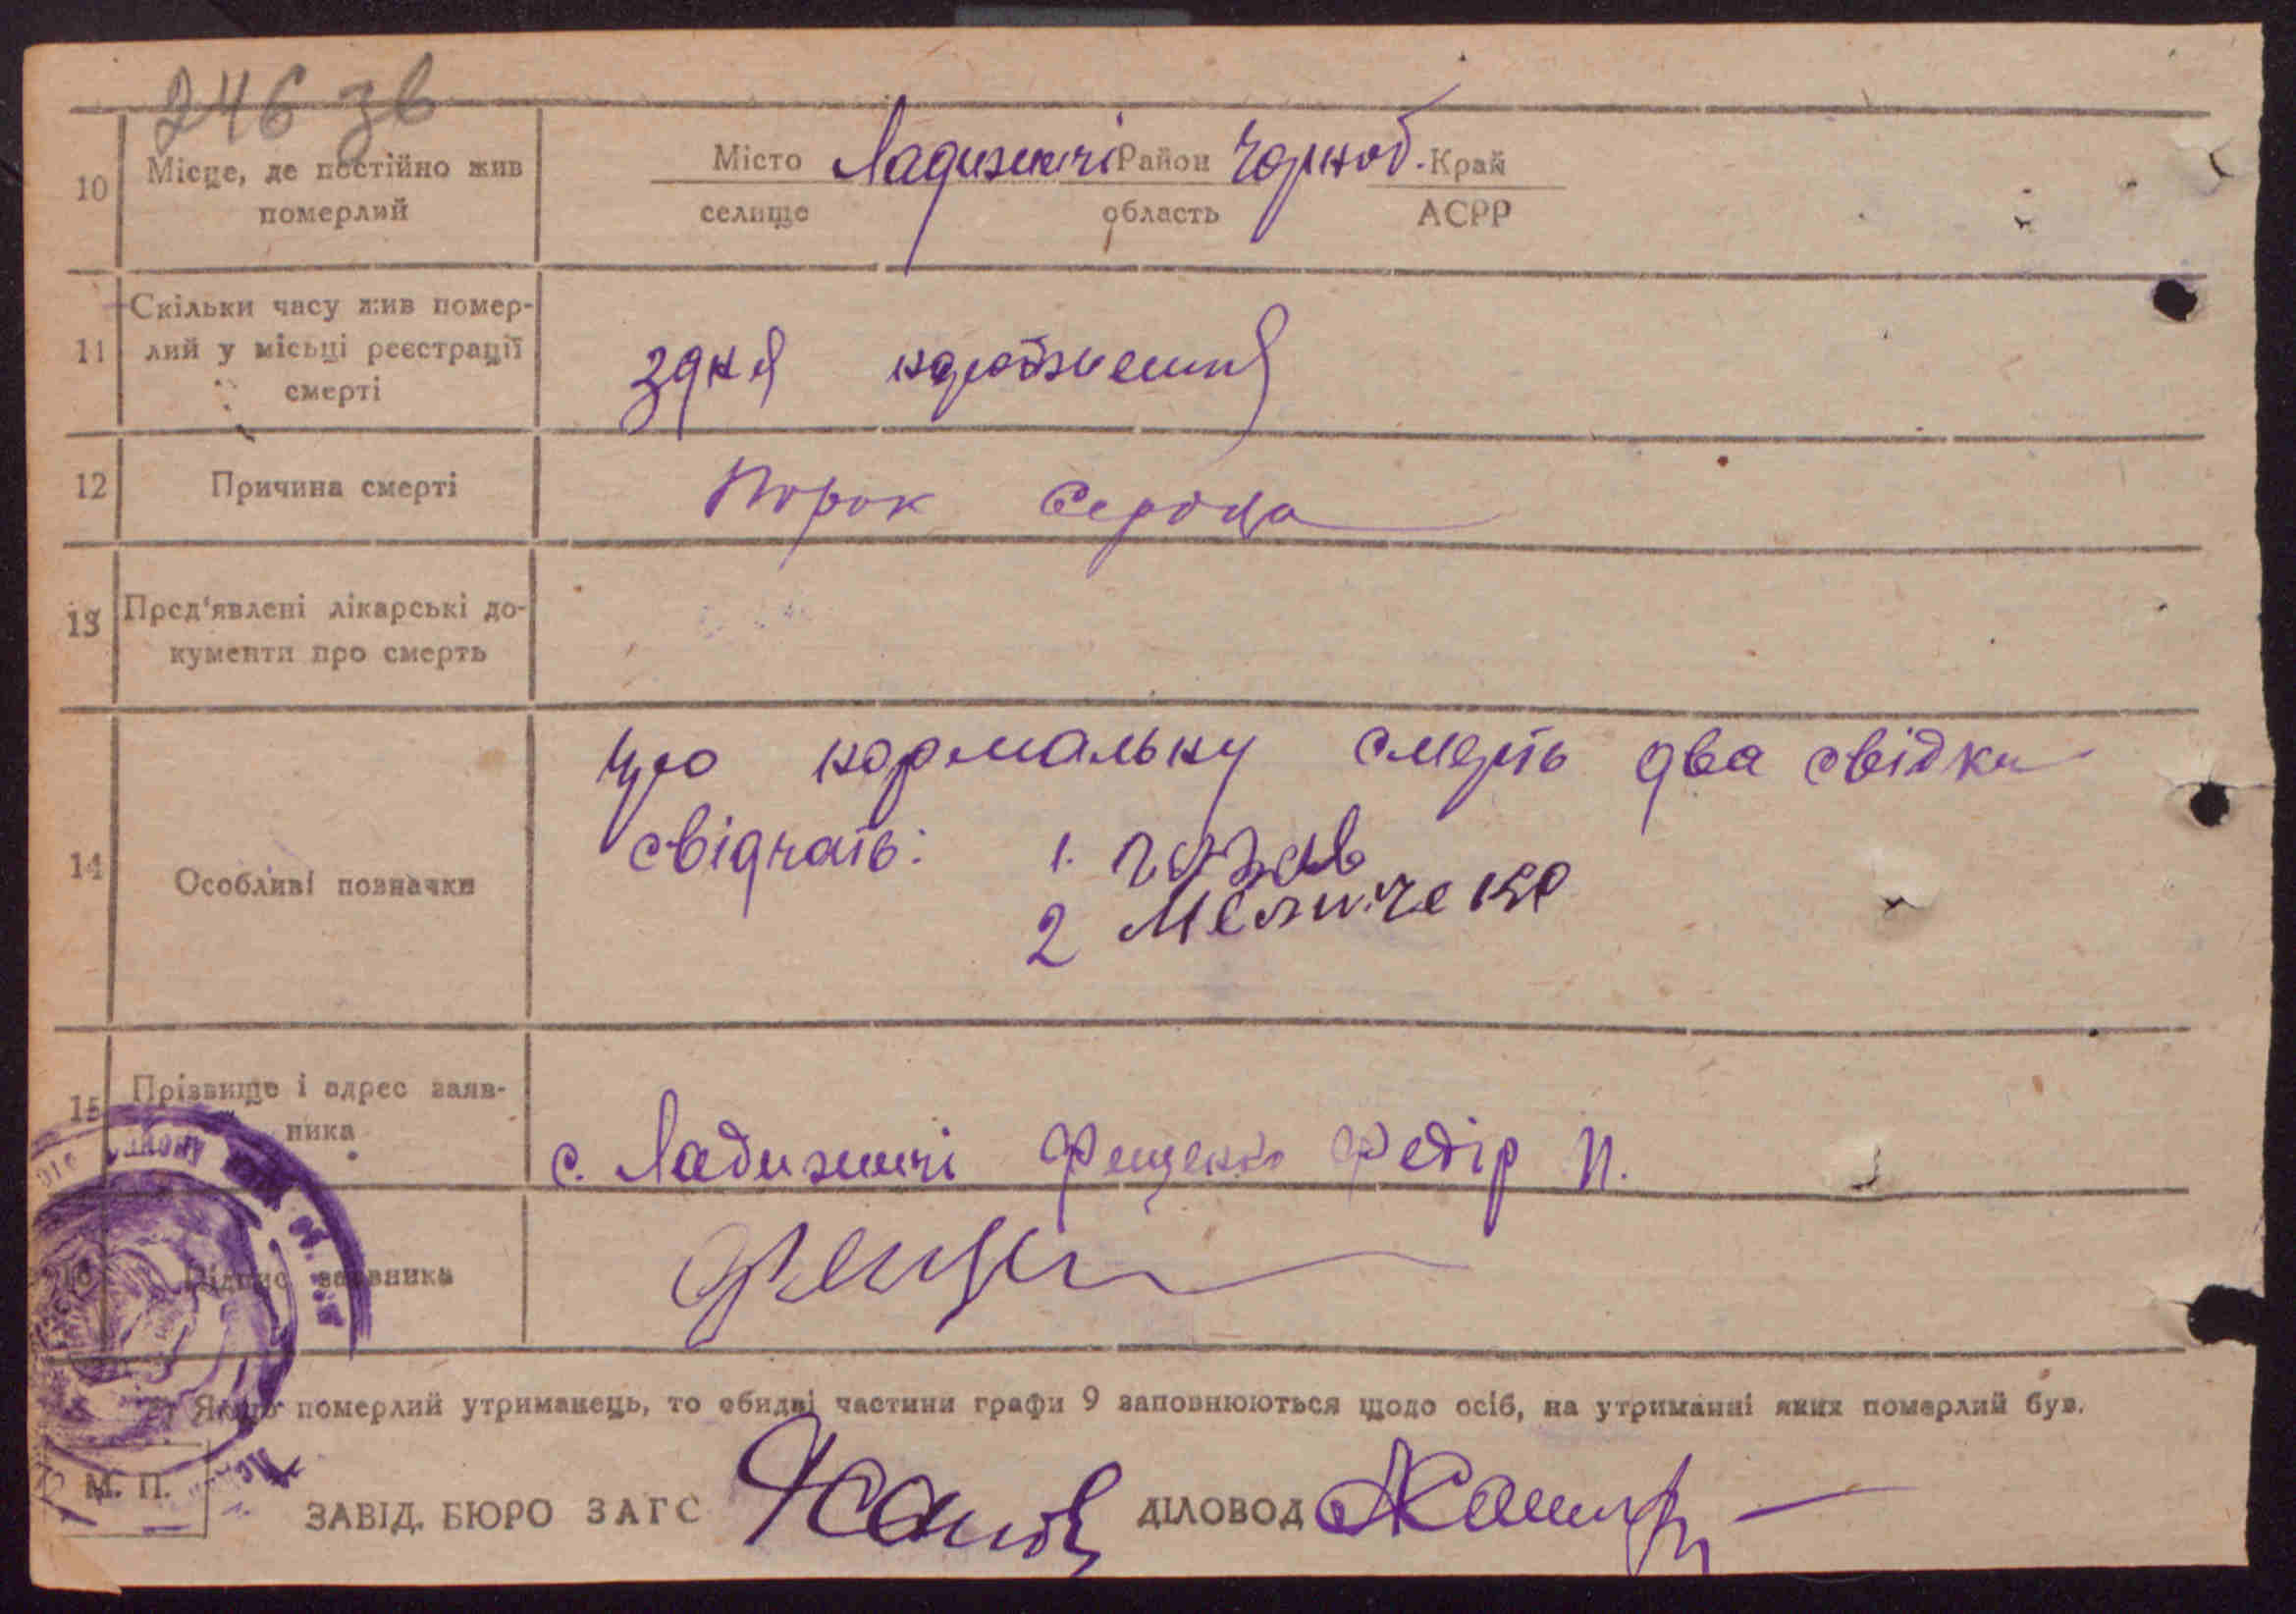 246 зв
10 Місце, де постійно жив померлий
Місто Ладижичі Район Чорноб. Край
селище область АСРР
11 Скільки часу жив помер-
лий у місьці реєстрації
смерті
з дня народження
12 Причина смерті Порок Сердца
13 Пред'явлені лікарські до-
кументи про смерть
14 Особливі позначки
Що нормальну смерть два свідки
свідчать: 1.
2
15 Прізвище і адрес заяв-
ника
с. Ладижичі Фещенко Федір П.
16 Підпис заявника Фещен
Якщо померлий утриманець, то обидві частини графи 9 заповнюються щодо осіб, на утриманні яких померлий був.
М. П.
ЗАВІД. БЮРО ЗАГС ДІЛОВОД